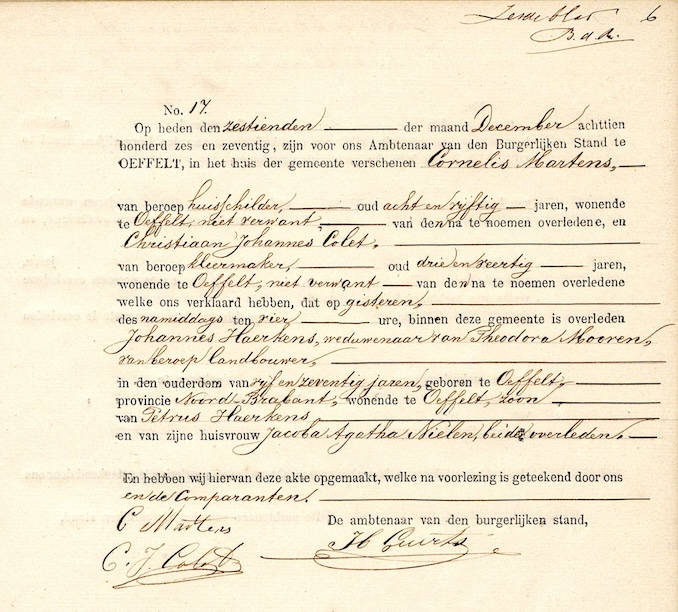 Zesde blad 6
B. d. R.
No. 17.
Op heden den zestienden der maand December achttien
honderd zes en zeventig, zijn voor ons Ambtenaar van den Burgerlijken Stand te
OEFFELT, in het huis der gemeente verschenen Cornelis Martens,
van beroep huisschilder, oud acht en vijftig jaren, wonende
te Oeffelt, niet verwant, van den na te noemen overledene, en
Christiaan Johannes Colet.
van beroep kleermaker, oud drie en veertig jaren,
wonende te Oeffelt, niet verwant van den na te noemen overledene
welke ons verklaard hebben, dat op gisteren,
des namiddags ten vier ure, binnen deze gemeente is overleden
Johannes Haerkens, weduwenaar van Theodora Mooren,
van beroep landbouwer,
in den ouderdom van vijf en zeventig jaren, geboren te Oeffelt,
provincie Noord-Brabant, wonende te Oeffelt, zoon
van Petrus Haerkens
en van zijne huisvrouw Jacoba Agatha Niëlen, beide overleden.
En hebben wij hiervan deze akte opgemaakt, welke na voorlezing is geteekend door ons
en de Comparanten.
C Martens De ambtenaar van den burgerlijken stand,
C. J. Colet H Geurts